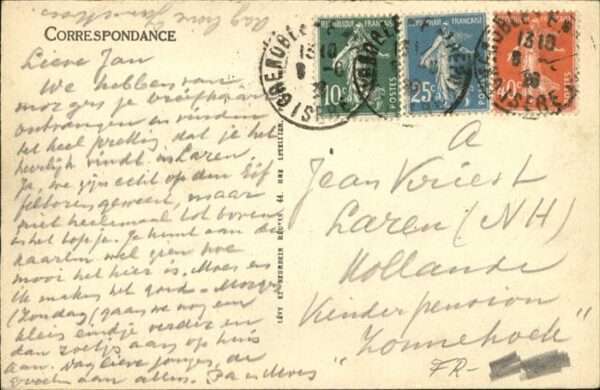 Dag lieve
CORRESPONDANCE
Lieve Jan
We hebben van
morgen je briefkaart
ontvangen en vinden
het heel prettig dat je het
heerlijk vindt in Laren.
Ja, we zijn echt op den Eif
feltoren geweest, maar
niet heelemaal tot boven
in het topje. Je kunt aan de
kaarten wel zien hoe
mooi het hier is. Moes en
ik maken het goed. Morgen
(Zondag) gaan we nog een
klein eindje verder en
dan zoetjes aan op huis
aan. Dag lieve jongen, de
groeten aan allen. Pa en Moes
LÉVY ET NEURDEIN RÉUNIS, 44 RUE LETELLIER
GRENOBLE
ISÈRE
13 10
REPUBLIQUE FRANÇAISE
POSTES
10c
25c
40c
A
Jean Kriest
Laren (NH)
Hollande
Kinderpension
"Zonnehoek"
FR-